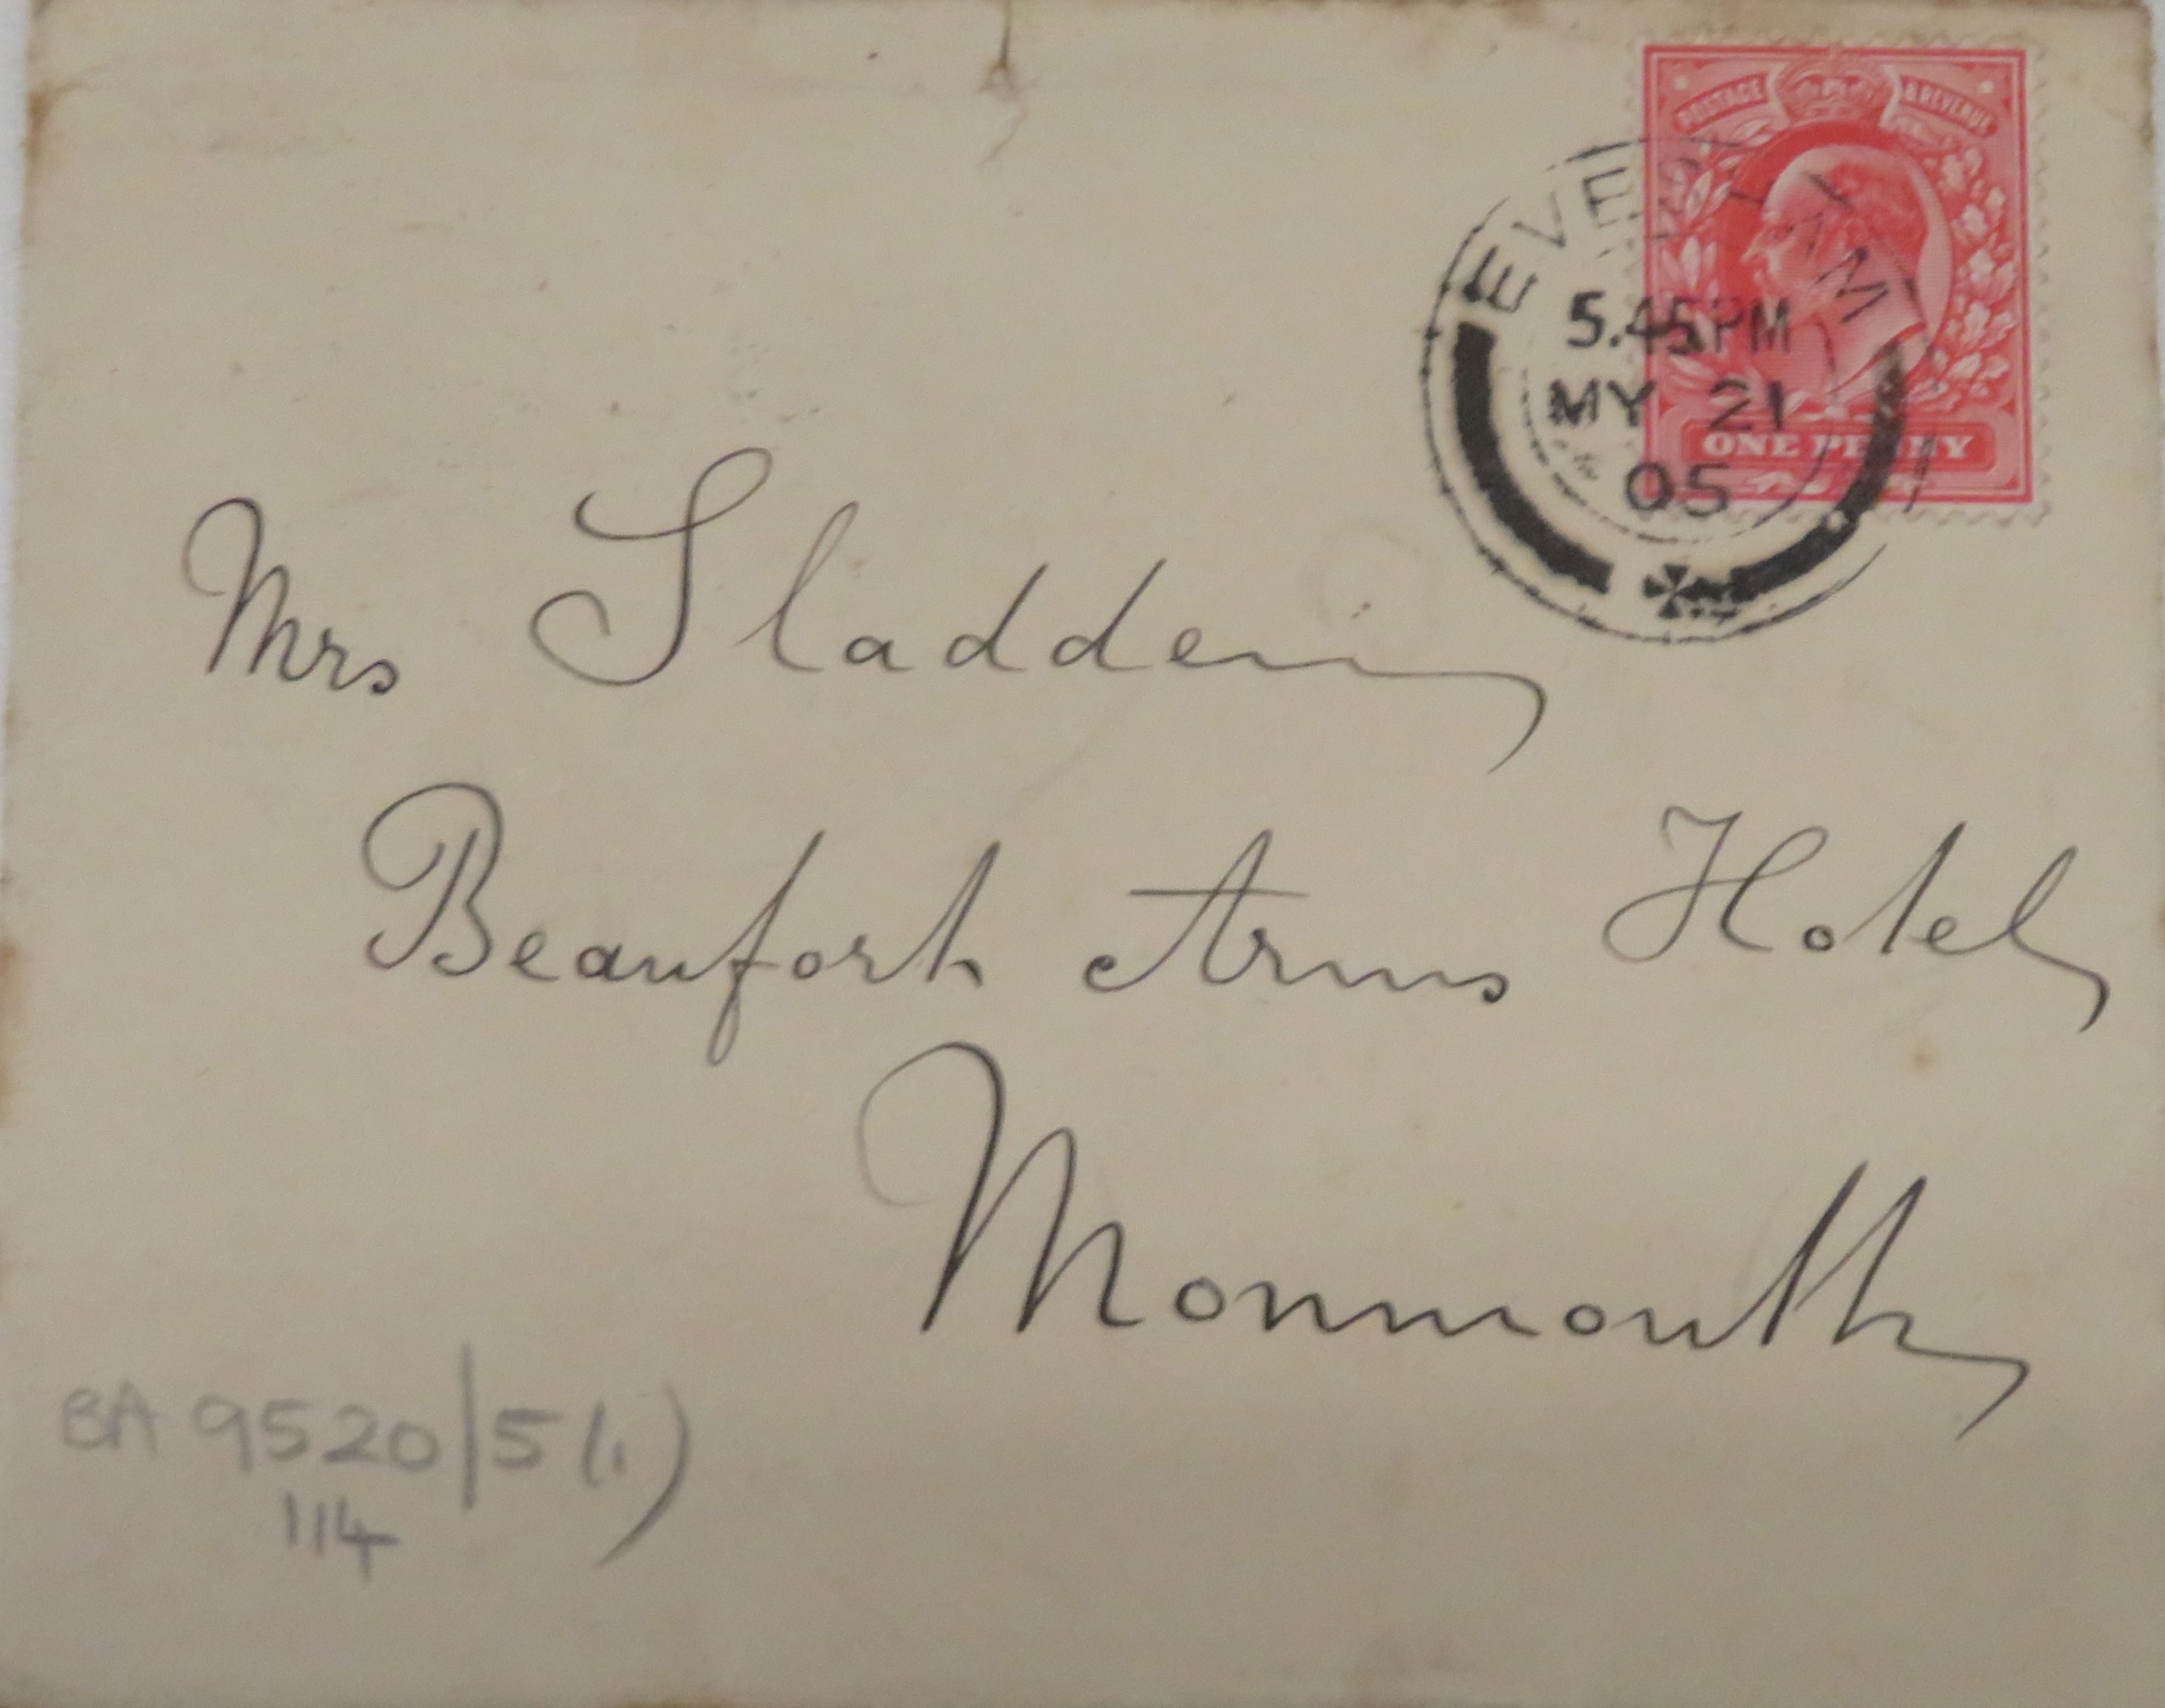 POSTAGE & REVENUE
EVESHAM
5.45PM
MY 21
05
ONE PENNY
Mrs Sladden
Beaufort Arms Hotel
Monmouth
BA 9520/5(1)
114